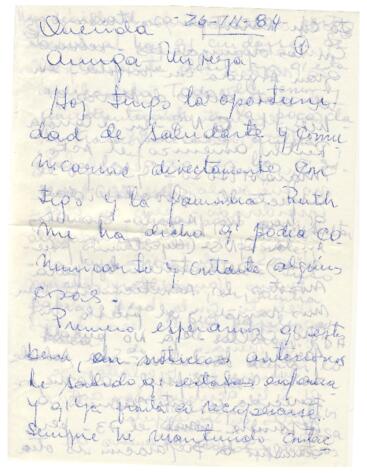 Querida -26-IV-84-
Amiga Mireya ①
Hoy tengo la oportuni
dad de saludarte y comu
nicarme directamente con
tigo y la familia. Ruth
me ha dicho q' podía co
municarte y contarte algunas
cosas.
Primero, esperamos q' estés
bien, en noticias anteriores
he sabido q' estabas enferma
y q' ya ibas a recuperarse.
Siempre he mantenido contac